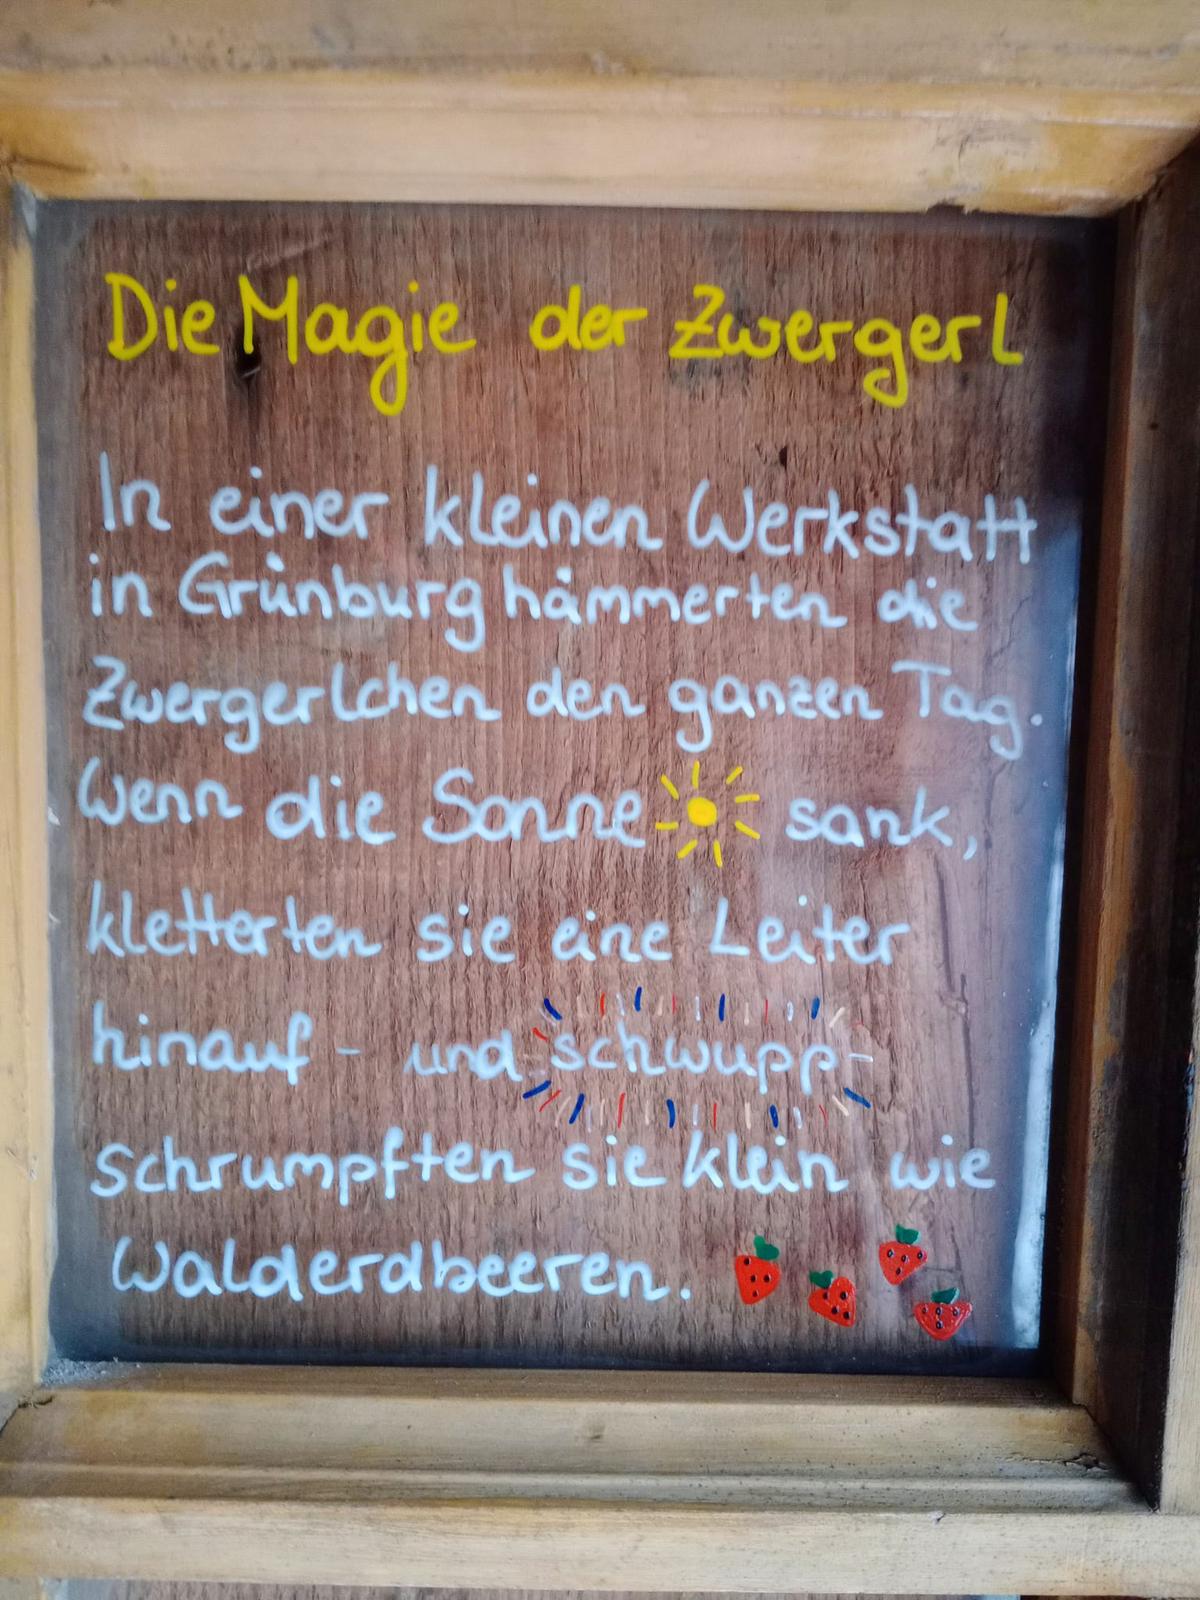 Die Magie der Zwergerl
In einer kleinen Werkstatt
in Grünburg hämmerten die
Zwergerlchen den ganzen Tag.
Wenn die Sonne sank,
kletterten sie eine Leiter
hinauf - und schwupp
schrumpften sie klein wie
Walderdbeeren.